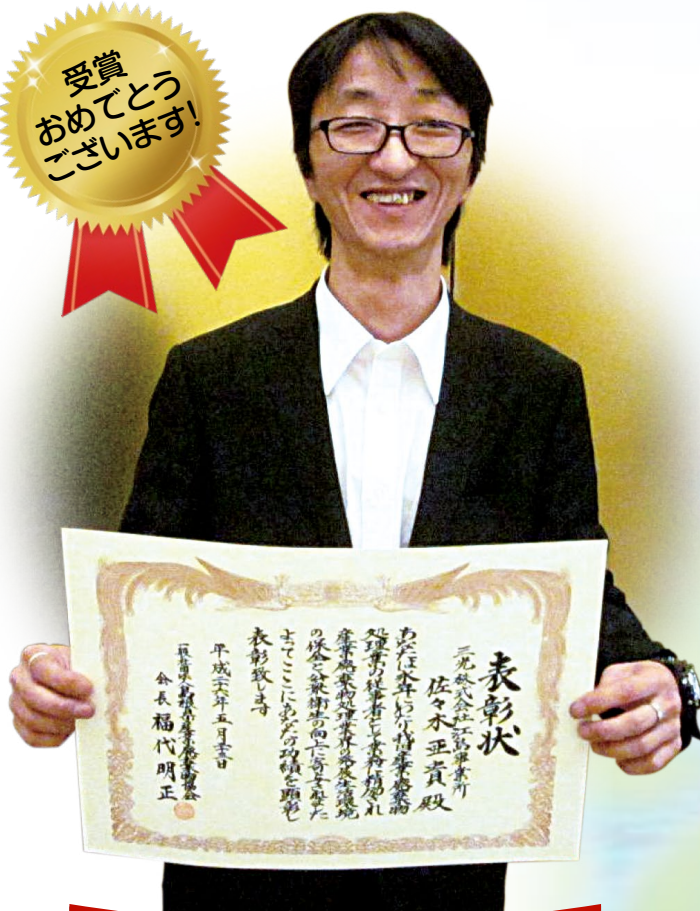 受賞
おめでとう
ございます!
表彰状
三光株式会社江島事業所
佐々木 貴殿
あなたは永年にわたり産業廃棄物
処理業の従事者として業務に精励され
産業廃棄物処理業界の発展と生活環境
の保全と公衆衛生の向上に寄与され
よってここにあなたの功績を顕彰し
表彰致します
平成二十六年五月 日
一般社団法人島根県産業廃棄物協会
会長 福代明正